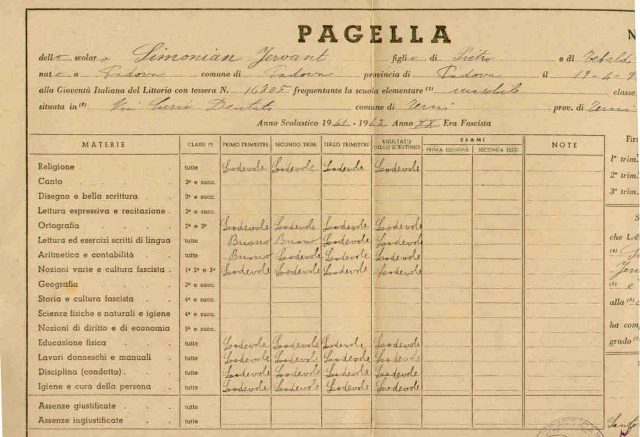 PAGELLA
dello scolaro Simonian Jervant figlio di Pietro e di Tebaldi
nato a Padova comune di Padova provincia di Padova il 19-4-
alla Gioventù Italiana del Littorio con tessera N. 16305 frequentante la scuola elementare (1) maschile classe
situata in (2) Via comune di prov. di
Anno Scolastico 1941 - 1942 Anno XX Era Fascista
MATERIE CLASSI (*) PRIMO TRIMESTRE SECONDO TRIM. TERZO TRIMESTRE RISULTATO DELLO SCRUTINIO ESAMI NOTE
PRIMA SESSIONE SECONDA SESS.
Religione tutte Lodevole Lodevole Lodevole Lodevole
Canto 3ª e succ.
Disegno e bella scrittura 3ª e succ.
Lettura espressiva e recitazione 3ª e succ.
Ortografia 2ª e 3ª Lodevole Lodevole Lodevole Lodevole
Lettura ed esercizi scritti di lingua tutte Buono Buono Lodevole Lodevole
Aritmetica e contabilità tutte Buono Lodevole Lodevole Lodevole
Nozioni varie e cultura fascista 1ª 2ª e 3ª Lodevole Lodevole Lodevole Lodevole
Geografia 3ª e succ.
Storia e cultura fascista 4ª e succ.
Scienze fisiche e naturali e igiene 4ª e succ.
Nozioni di diritto e di economia 5ª e succ.
Educazione fisica tutte Lodevole Lodevole Lodevole Lodevole
Lavori donneschi e manuali tutte Lodevole Lodevole Lodevole Lodevole
Disciplina (condotta) tutte Lodevole Lodevole Lodevole Lodevole
Igiene e cura della persona tutte Lodevole Lodevole Lodevole Lodevole
Assenze giustificate tutte
Assenze ingiustificate tutte
N
Fir
1º trim.
2º trim.
3º trim.
che
alla (3)
ha com
grado